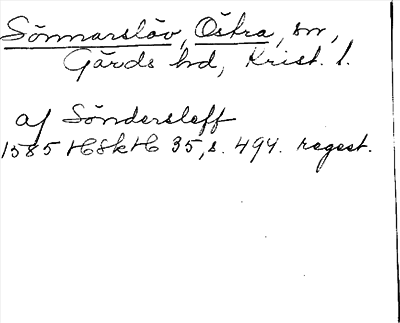 Sönnarslöv, Östra, sn,
Gärds hd, Krist. l.
af Söndersleff
1585 HSkH 35, s. 494. regest.